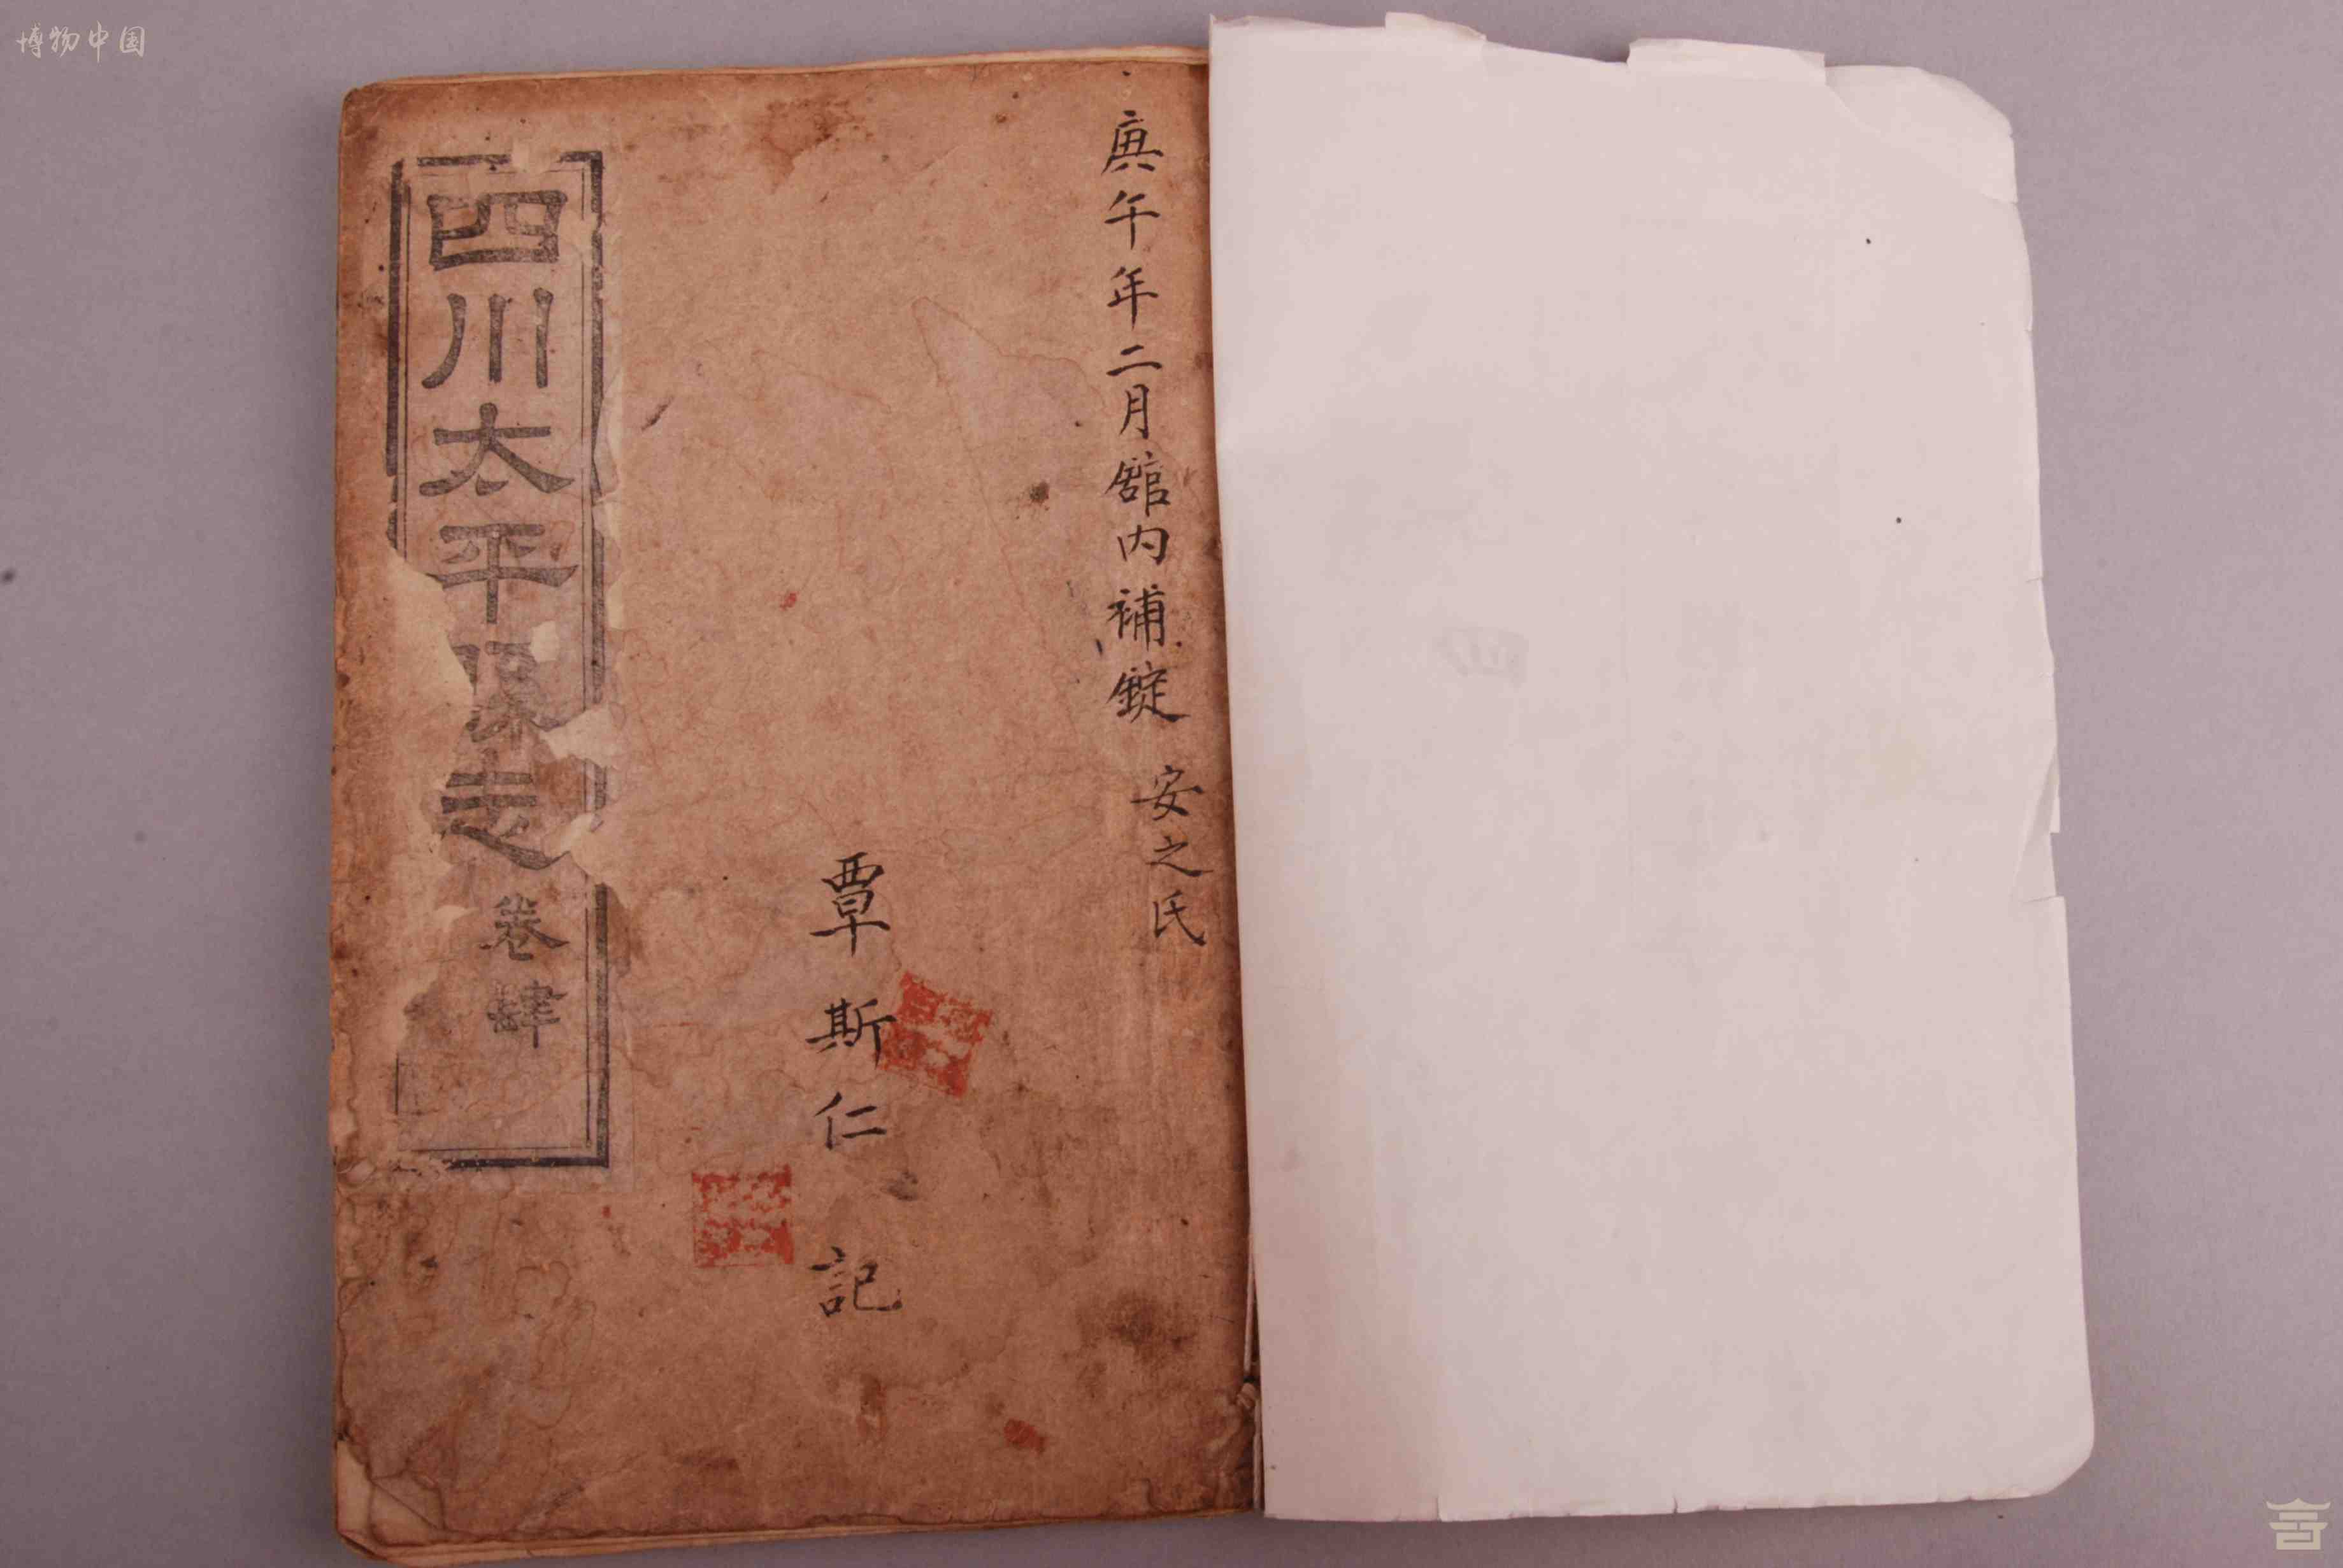 博物中国
庚午年二月舘内補錠
安之氏
覃斯仁記
四川太平縣志
卷肆